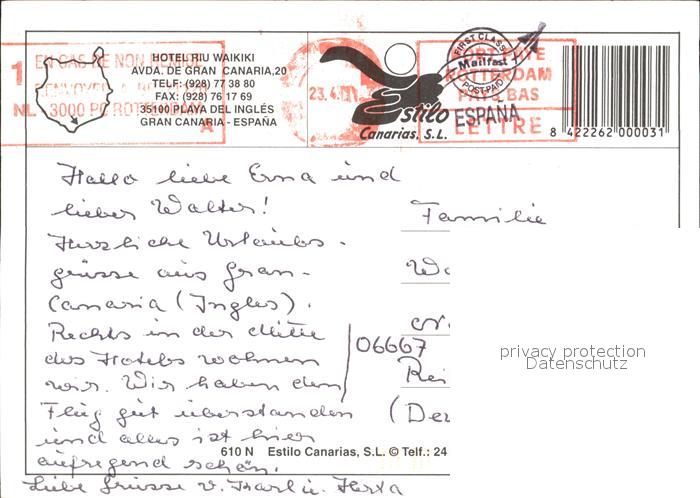 HOTEL RIU WAIKIKI
AVDA. DE GRAN CANARIA,20
TELF: (928) 77 38 80
FAX: (928) 76 17 69
35100 PLAYA DEL INGLÉS
GRAN CANARIA - ESPAÑA
1
EN CAS DE NON REMISE
NL 3000 ROTTERDAM
A
23.4.
Estilo
Canarias, S.L.
FIRST CLASS
Mailfast
POST-PAID
ESPAÑA
PORT PAYE
ROTTERDAM
PAYS-BAS
LETTRE
8 422262 000031
Hallo liebe Erna und
lieber Walter!
Herzliche Urlaubs-
grüsse aus Gran-
Canaria (Ingles).
Rechts in der Mitte
des Hotels wohnen
wir. Wir haben den
Flug gut überstanden
und alles ist hier
aufregend schön.
Liebe Grüsse v. Karl u. Herta
Familie
06667
(De
privacy protection
Datenschutz
610 N Estilo Canarias, S.L. © Telf.: 24